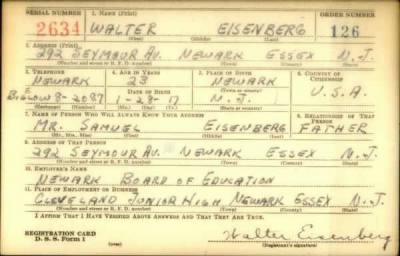 SERIAL NUMBER 1. NAME (Print) ORDER NUMBER
2634 WALTER EISENBERG 126
(First) (Middle) (Last)
2. ADDRESS (Print)
292 SEYMOUR AV. NEWARK ESSEX N.J.
(Number and street or R. F. D. number) (Town) (County) (State)
3. TELEPHONE 4. AGE IN YEARS 5. PLACE OF BIRTH 6. COUNTRY OF CITIZENSHIP
NEWARK 23 NEWARK
DATE OF BIRTH U.S.A.
BIGLOW 8-2087 1-28-17 N.J.
(Exchange) (Number) (Mo.) (Day) (Yr.) (State or country)
7. NAME OF PERSON WHO WILL ALWAYS KNOW YOUR ADDRESS 8. RELATIONSHIP OF THAT PERSON
MR. SAMUEL EISENBERG FATHER
(Mr., Mrs., Miss) (First) (Middle) (Last)
9. ADDRESS OF THAT PERSON
292 SEYMOUR AV. NEWARK ESSEX N.J.
(Number and street or R. F. D. number) (Town) (County) (State)
10. EMPLOYER'S NAME
NEWARK BOARD OF EDUCATION
11. PLACE OF EMPLOYMENT OR BUSINESS
CLEVELAND JUNIOR HIGH NEWARK ESSEX N.J.
(Number and street or R. F. D. number) (Town) (County) (State)
I AFFIRM THAT I HAVE VERIFIED ABOVE ANSWERS AND THAT THEY ARE TRUE.
REGISTRATION CARD
D. S. S. Form 1 Walter Eisenberg
(Registrant's signature)